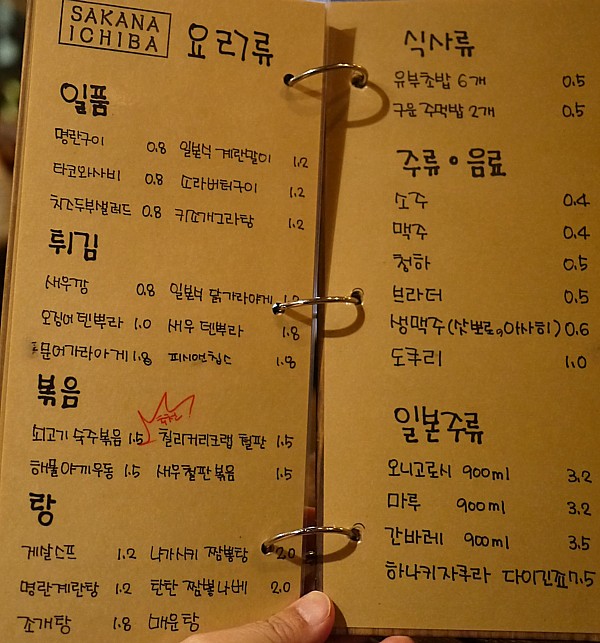 SAKANA
ICHIBA
요리류
일품
명란구이 0.8 일본식 계란말이 1.2
타코와사비 0.8 소라버터구이 1.2
치즈두부샐러드 0.8 키조개그라탕 1.2
튀김
새우깡 0.8 일본식 닭가라아게
오징어 텐뿌라 1.0 새우 텐뿌라 1.8
문어가라아게 1.8 피시앤칩스 1.8
볶음
추천!
쇠고기 숙주볶음 1.5 칠리커리크랩 철판 1.5
해물야끼우동 1.5 새우철판볶음 1.5
랑
게살스프 1.2 나가사키 짬뽕탕 2.0
명란계란탕 1.2 탄탄 짬뽕나베 2.0
조개탕 1.8 매운탕
식사류
유부초밥 6개 0.5
구운주먹밥 2개 0.5
주류 • 음료
소주 0.4
맥주 0.4
청하 0.5
브라더 0.5
생맥주(삿뽀로,아사히) 0.6
도쿠리 1.0
일본주류
오니고로시 900ml 3.2
마루 900ml 3.2
간바레 900ml 3.5
하나키자쿠라 다이긴죠 7.5